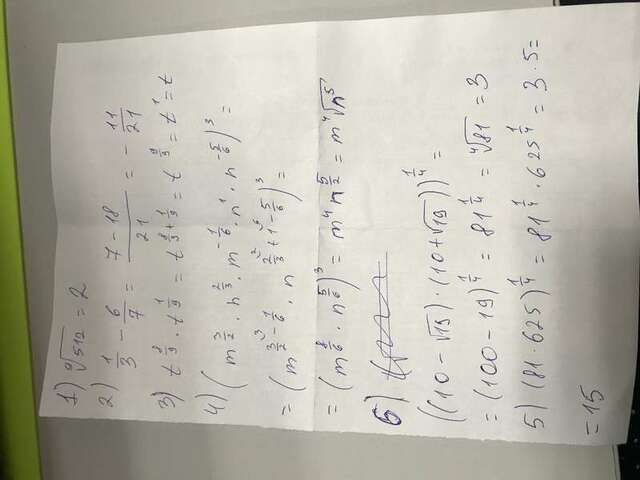 1) ⁹√512 = 2
2) 1/3 − 6/7 = (7 − 18)/21 = − 11/21
3) t^(8/9) · t^(1/9) = t^(8/9 + 1/9) = t^(9/9) = t¹ = t
4) (m^(3/2) · n^(2/3) · m^(−1/6) · n¹ · n^(−5/6))³ =
= (m^(3/2 − 1/6) · n^(2/3 + 1 − 5/6))³ =
= (m^(8/6) · n^(5/6))³ = m⁴ n^(5/2) = m⁴ √n⁵
6)
((10 − √19) · (10 + √19))^(1/4) =
= (100 − 19)^(1/4) = 81^(1/4) = ⁴√81 = 3
5) (81 · 625)^(1/4) = 81^(1/4) · 625^(1/4) = 3 · 5 =
= 15